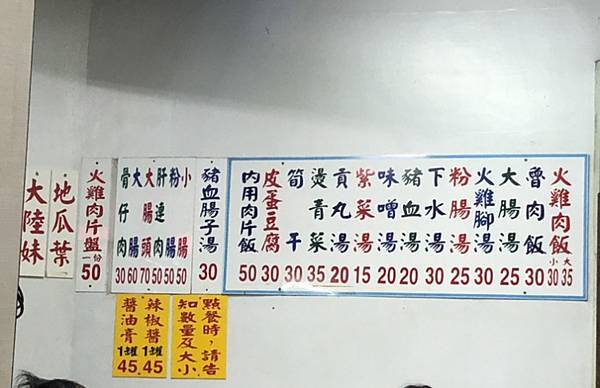 火雞肉飯 小30 大35
魯肉飯 30
大腸湯 25
火雞腳湯 30
粉腸湯 25
下水湯 30
豬血湯 20
味噌湯 20
紫菜湯 15
貢丸湯 20
燙青菜 35
筍干 30
皮蛋豆腐 30
內用肉片飯 50
豬血腸子湯 30
小腸 50
粉腸 50
肝連肉 50
大腸頭 70
大腸 60
骨仔肉 30
火雞肉片盤 一份 50
地瓜葉
大陸妹
點餐時,請告
知數量及大小
辣椒醬 1罐 45
醬油膏 1罐 45